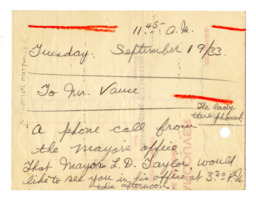 11.45 A.M.
Tuesday: September 19/33.
To Mr. Vause
The lady
then phoned
A phone call from
the mayors office
That Mayor L.D. Taylor would
like to see you in his office at 3:30 P.M.
this afternoon.